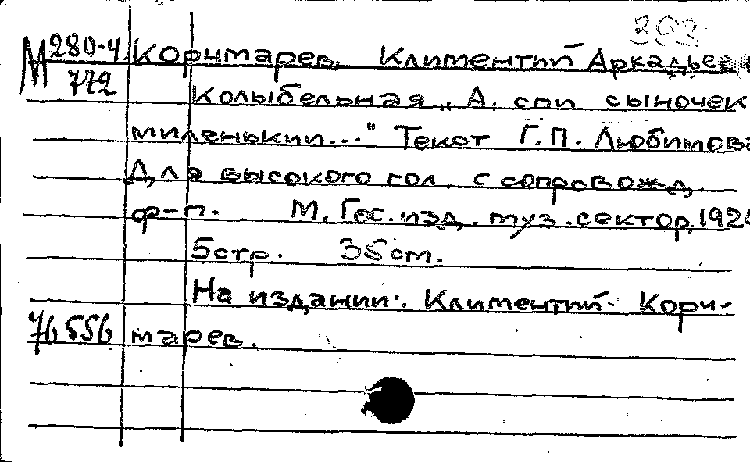 393
М 280-4 Корчмарев, Климентий Аркадьев
772 Колыбельная „А, спи сыночек
миленький..." Текст Г.П. Любимова
Для высокого гол. с сопровожд.
ф-п. М. Гос. изд. муз. сектор, 192
5 стр. 35 cm.
На издании: Климентий Корч-
76556 марев.